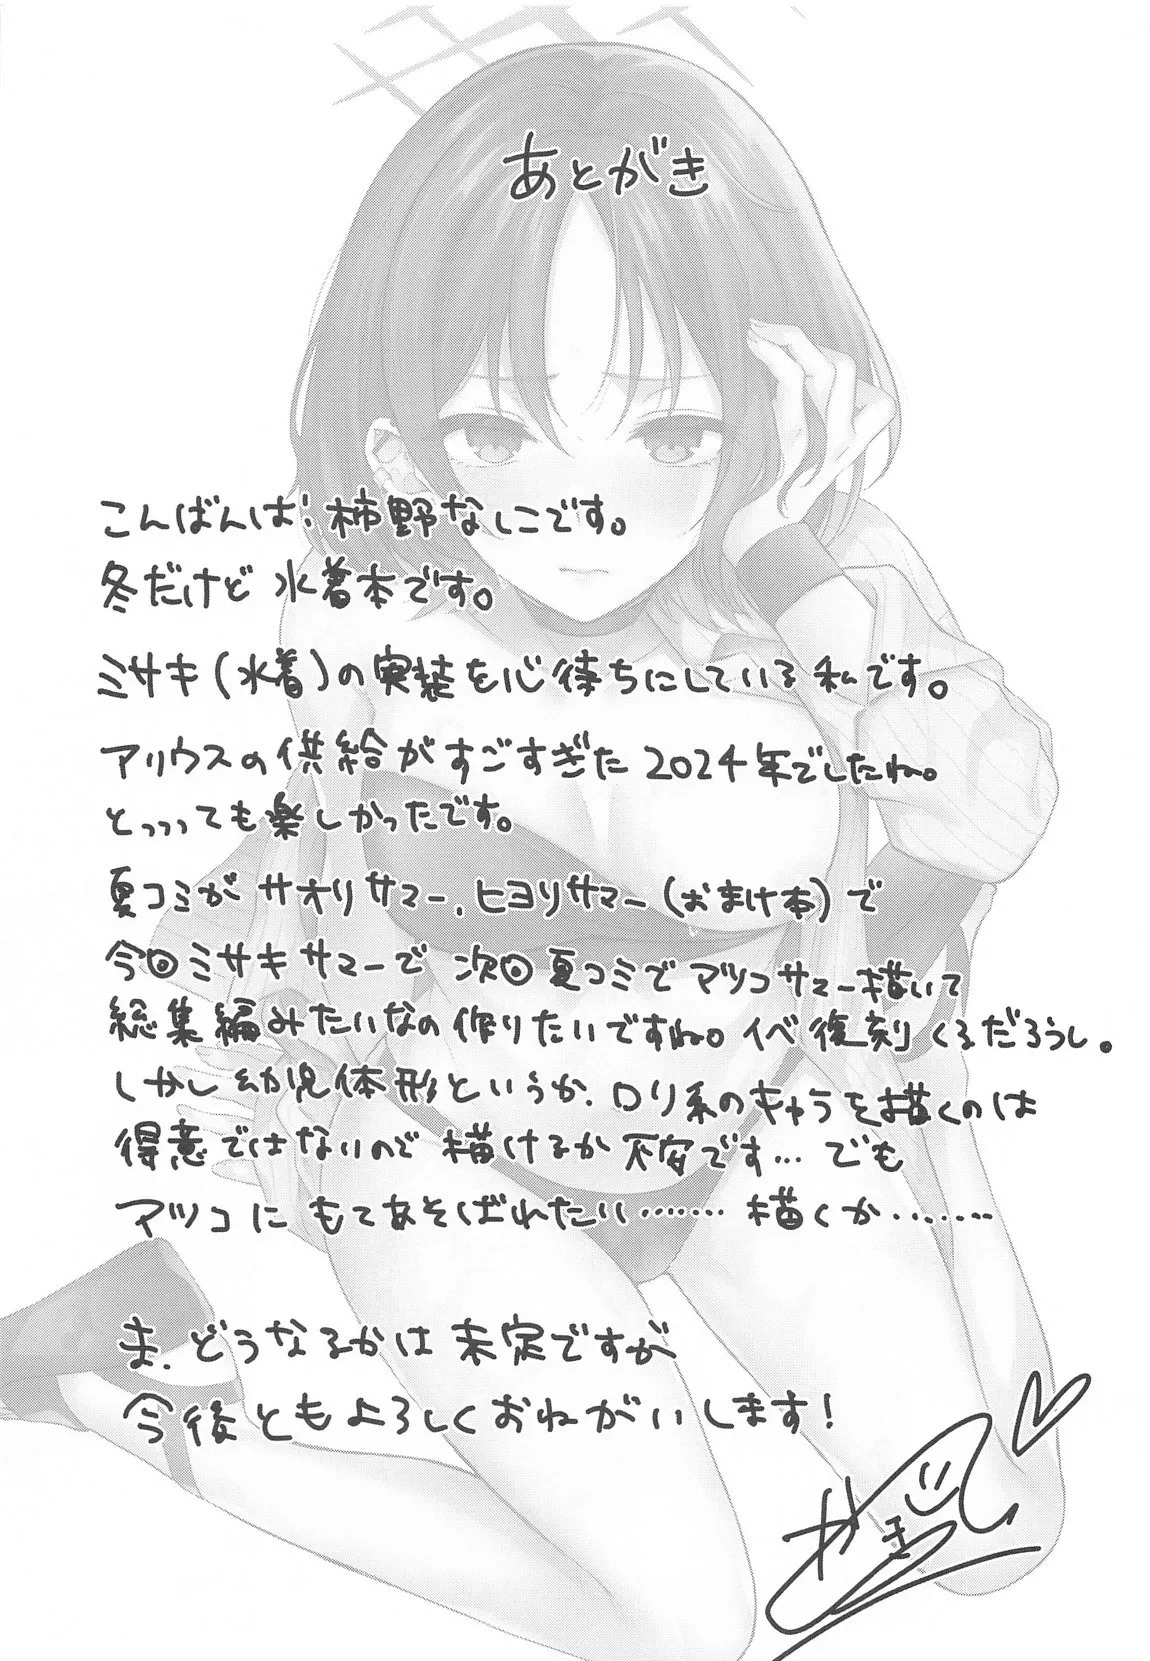 あとがき
こんばんは！柿野なしこです。
冬だけど水着本です。
ミサキ(水着)の実装を心待ちにしている私です。
アリウスの供給がすごすぎた2024年でしたね。
とっっっても楽しかったです。
夏コミがサオリサマー、ヒヨリサマー(おまけ本)で
今回ミサキサマーで次回夏コミでアツコサマー描いて
総集編みたいなの作りたいですね。イベ復刻くるだろうし。
しかし幼児体形というか、ロリ系のキャラを描くのは
得意ではないので描けるか不安です…でも
アツコにもてあそばれたい……描くか……
ま、どうなるかは未定ですが
今後ともよろしくおねがいします！
かき